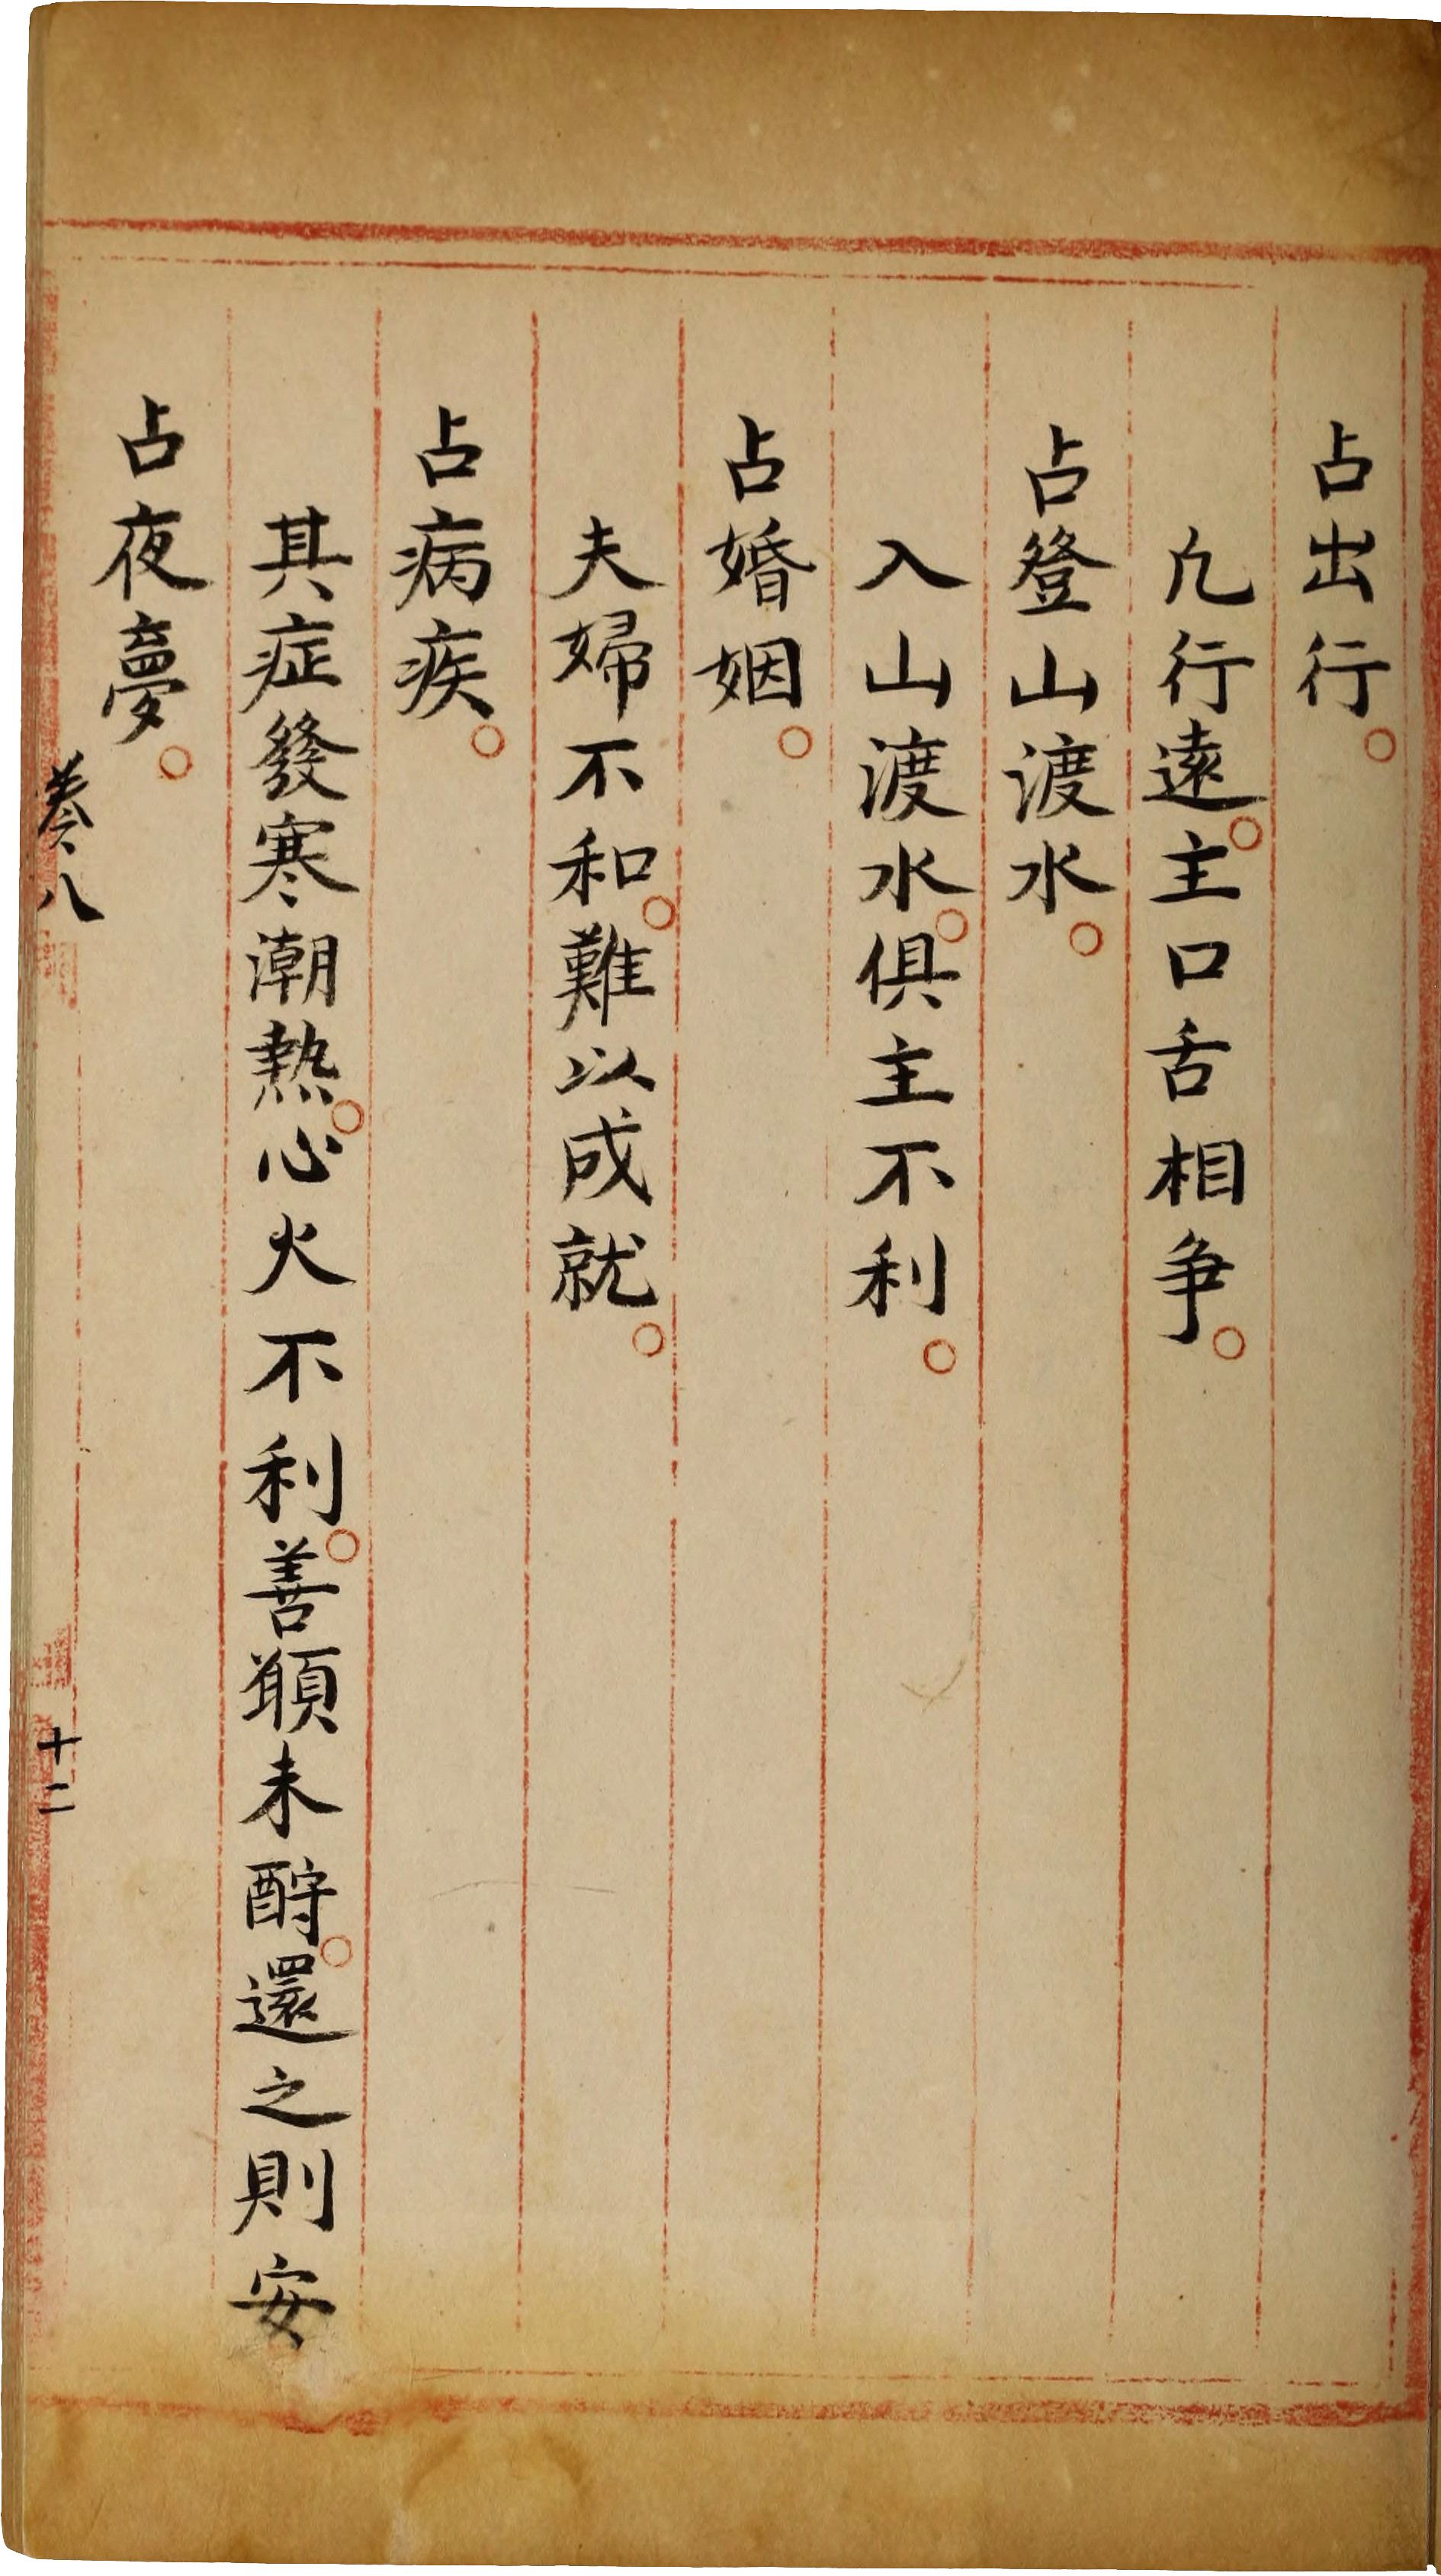 占出行。
凢行遠。主口舌相爭。
占登山渡水。
入山渡水。俱主不利。
占婚姻。
夫婦不和。難以成就。
占病疾。
其症發寒潮熱。心火不利。善願未酧。還之則安
占夜夢。
卷八
十二